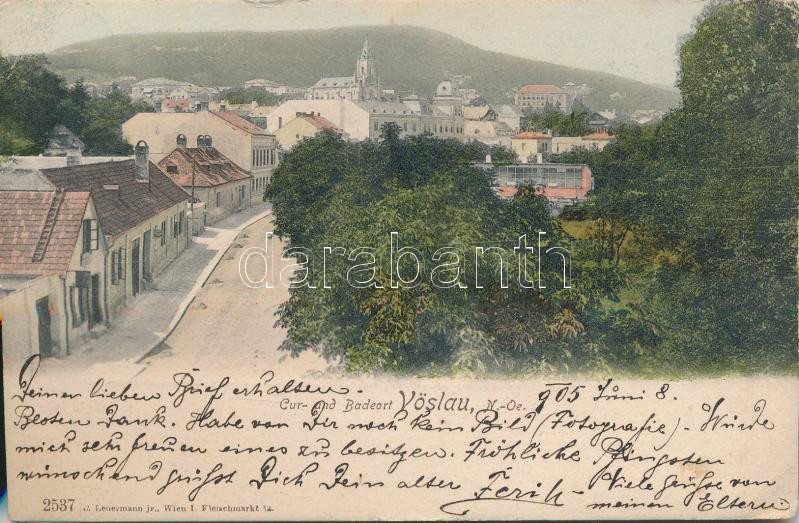 darabanth
Deinen lieben Brief erhalten. 905 Juni 8.
Cur- und Badeort Vöslau, N.-Oe.
Besten Dank. Habe von Dir noch kein Bild (Fotografie) - Würde
mich sehr freuen eines zu besitzen. Fröhliche Pfingsten
wünschend grüßt Dich Dein alter Ferik - Viele Grüsse von
meinen Eltern
2537 J. Leuermann jr., Wien I. Fleischmarkt